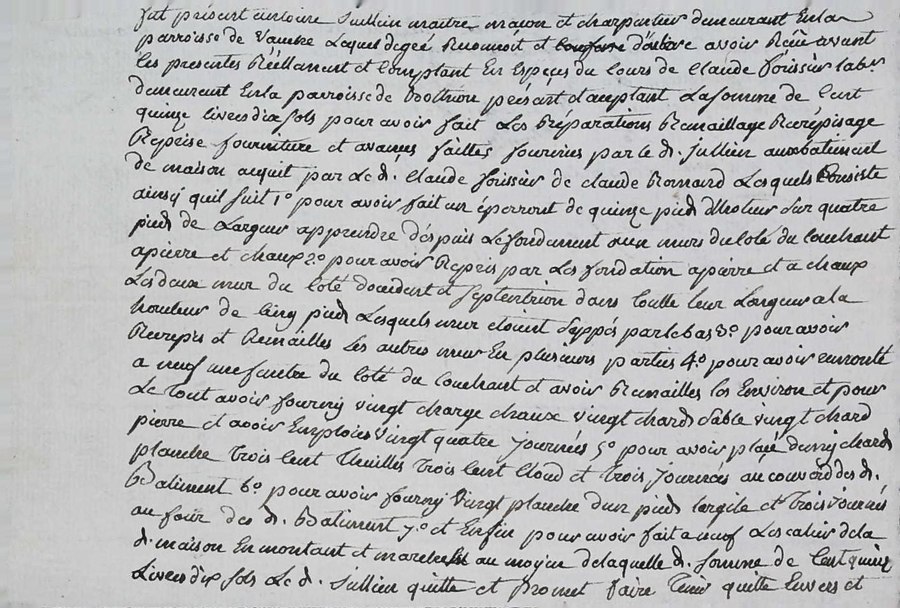 fut présent antoine Jullien maitre maçon et charpentier demeurant En la
parroisse de Vaudre Lequel de gré Reconnoit et confesse avoir Reçu avant
les presentes Réellement et Comptant En Espèces du Cours de Claude foissier labr
demeurant En la parroisse de Boothéon présent et acceptant La somme de Cent
quinze livres dix sols pour avoir fait Les Réparations Remaillage Recrépisage
Reprise fourniture et avances failles fournies par le d. Jullien aux batiment
de maison acquit par Le d. Claude foissier de claude Romand Lesquels Consiste
ainsy quil suit 1º pour avoir fait un éperront de quinze pied dhoteur Sur quatre
pied de Largeur apprendre dépuis Le fondament aux murs du Coté du Couchant
apierre et chaux 2º pour avoir Repris par Les fondation apierre et a chaux
Les deux mur du Coté doccident et Septentrion dans toutte leur Longueur a la
hauteur de Cinq pied Lesquels mur étoint Sappés par le bas 3º pour avoir
Recrepis et Remailles Les autres mur En plusieurs parties 4º pour avoir
a neuf une fenetre du Coté du Couchant et avoir Remailles les Environ et pour
Le tout avoir fourny vingt charge chaux vingt chard Sable vingt chard
pierre et avoir Emploies Vingt quatre journées 5º pour avoir placé demy chard
planche trois Cent thuilles trois Cent Cloud et trois journées au couverd des d.
Batiment 6º pour avoir fourny Vingt planche dun pied large et trois journées
au four des d. Batiment 7º et Enfin pour avoir fait a neuf Les calier de la
d. maison En montant et marche au moyen de laquelle d. somme de Cent quinze
Livres dix sols Le d. Jullien quitte et Promet faire tenir quitte Envers et